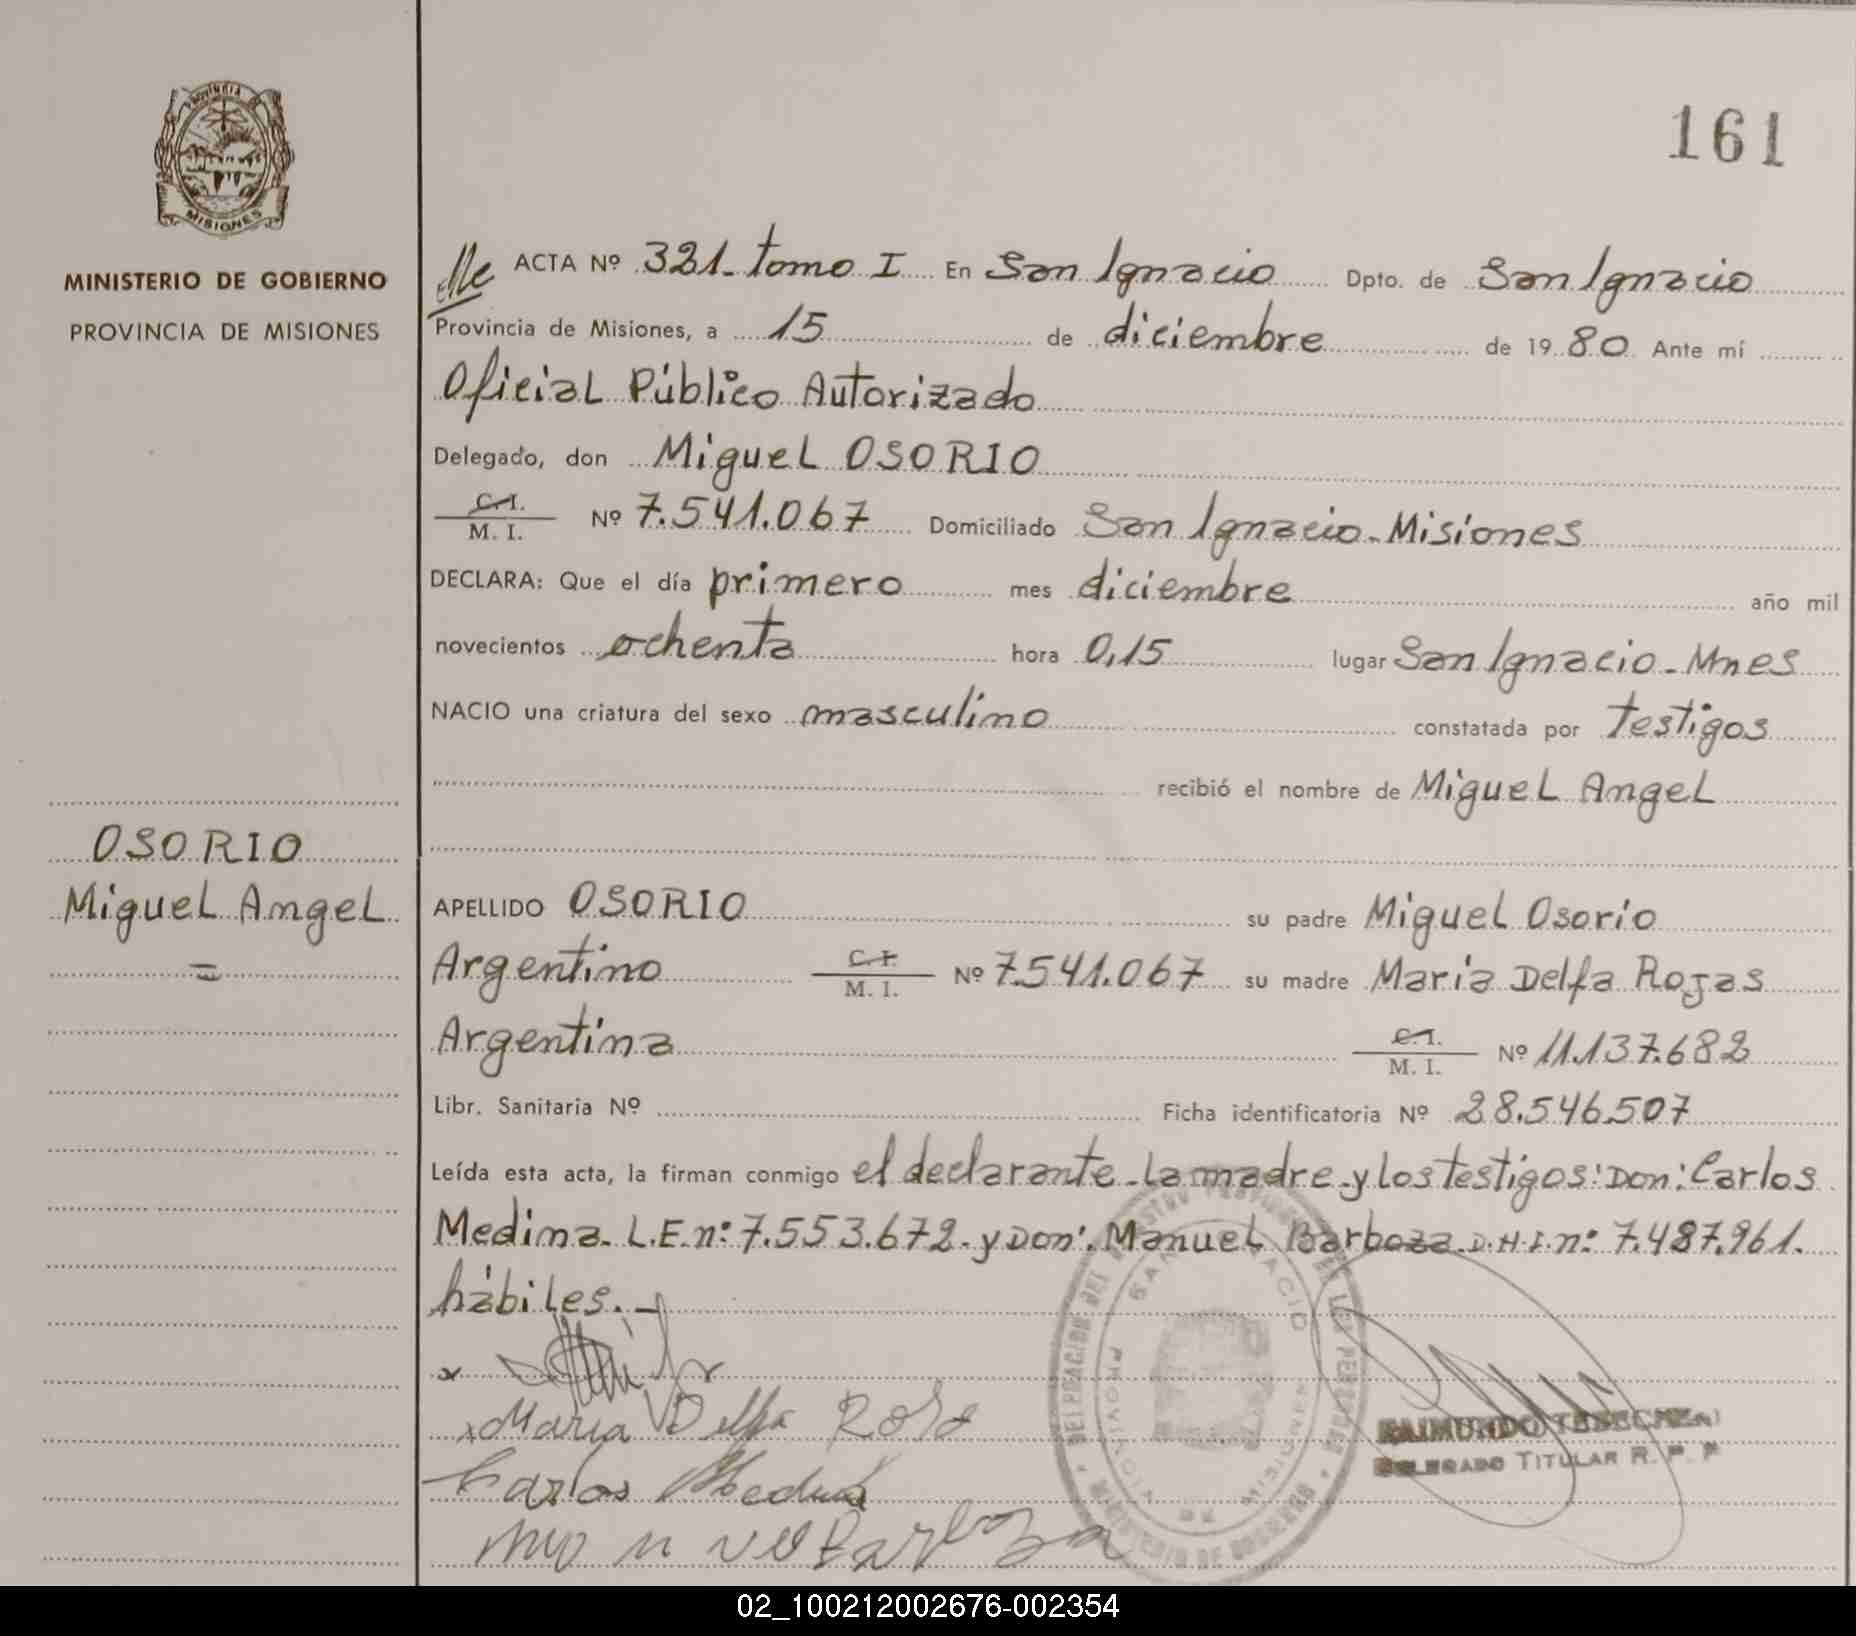 PROVINCIA DE
MISIONES
MINISTERIO DE GOBIERNO
PROVINCIA DE MISIONES
161
ACTA Nº 321- tomo I En San Ignacio Dpto. de San Ignacio
Provincia de Misiones, a 15 de diciembre de 1980 Ante mí
Oficial Público Autorizado
Delegado, don Miguel OSORIO
C.I.
M. I. Nº 7.541.067 Domiciliado San Ignacio-Misiones
DECLARA: Que el día primero mes diciembre año mil
novecientos ochenta hora 0,15 lugar San Ignacio-Mnes
NACIO una criatura del sexo masculino constatada por testigos
recibió el nombre de Miguel Angel
OSORIO
Miguel Angel
=
APELLIDO OSORIO su padre Miguel Osorio
Argentino C.I. M. I. Nº 7.541.067 su madre Maria Delfa Rojas
Argentina C.I. M. I. Nº 11.137.682
Libr. Sanitaria Nº Ficha identificatoria Nº 28.546.507
Leída esta acta, la firman conmigo el declarante-la madre-y los testigos: Don: Carlos
Medina- L.E.nº: 7.553.672-y Don: Manuel Barboza-D.N.I.nº: 7.487.961.
hábiles.-
x
x Maria Delfa Rosa
Carlos Medina
Barboza
SAN IGNACIO
PROVINCIA DE MISIONES
MINISTERIO DE GOBIERNO
RAIMUNDO
DELEGADO TITULAR R. P. P
02_100212002676-002354